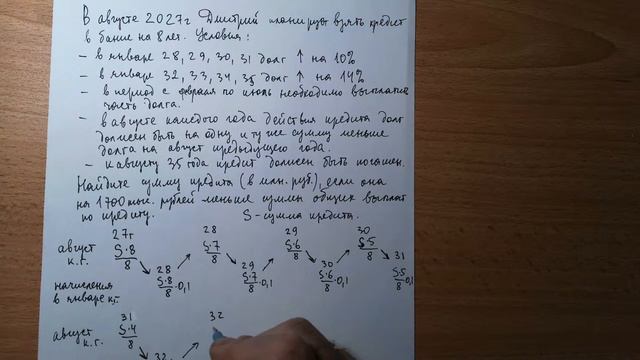 В августе 2027г Дмитрий планирует взять кредит
в банке на 8 лет. Условия:
– в январе 28, 29, 30, 31 долг ↑ на 10%
– в январе 32, 33, 34, 35 долг ↑ на 14%
– в период с февраля по июль необходимо выплатить
часть долга.
– в августе каждого года действия кредита долг
должен быть на одну и ту же сумму меньше
долга на август предыдущего года.
– к августу 35 года кредит должен быть погашен.
Найдите сумму кредита (в млн. руб.), если она
на 1700 тыс. рублей меньше суммы общих выплат
по кредиту. S – сумма кредита.
27г 28 29 30
август к.г. S·8/8 S·7/8 S·6/8 S·5/8
28 29 30 31
начисления в январе к.г. S·8/8·0,1 S·7/8·0,1 S·6/8·0,1 S·5/8·0,1
31 32
август к.г. S·4/8
32